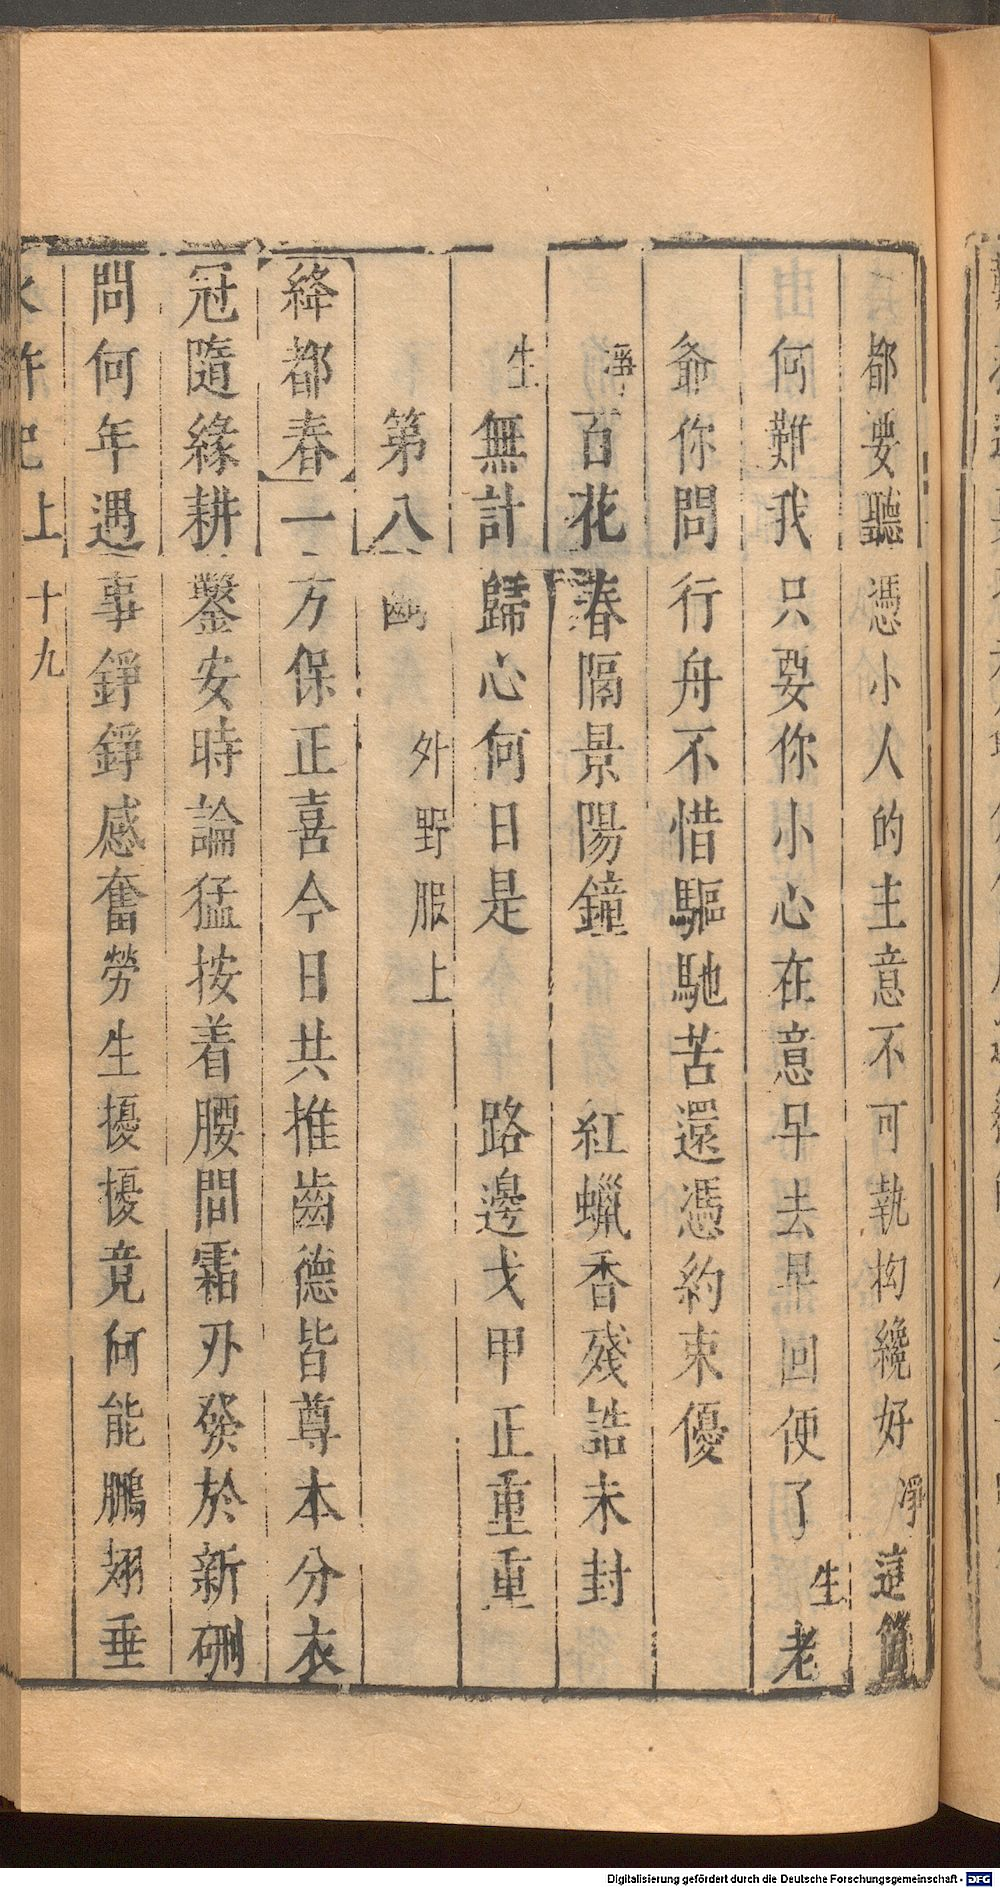 都要聽憑小人的主意不可執拘纔好淨這箇
何難我只要你小心在意早去早回便了生老
爺你問行舟不惜驅馳苦還憑約束優
淨百花春隔景陽鐘　紅蠟香殘誥未封
生無計歸心何日是　路邊戈甲正重重
第八齣　外野服上
絳都春一方保正喜今日共推齒德皆尊本分衣
冠隨緣耕鑿安時論猛按着腰間霜刃發於新硎
問何年遇事錚錚感奮勞生擾擾竟何能鵬翅垂
水滸記上 十九
Digitalisierung gefördert durch die Deutsche Forschungsgemeinschaft - DFG